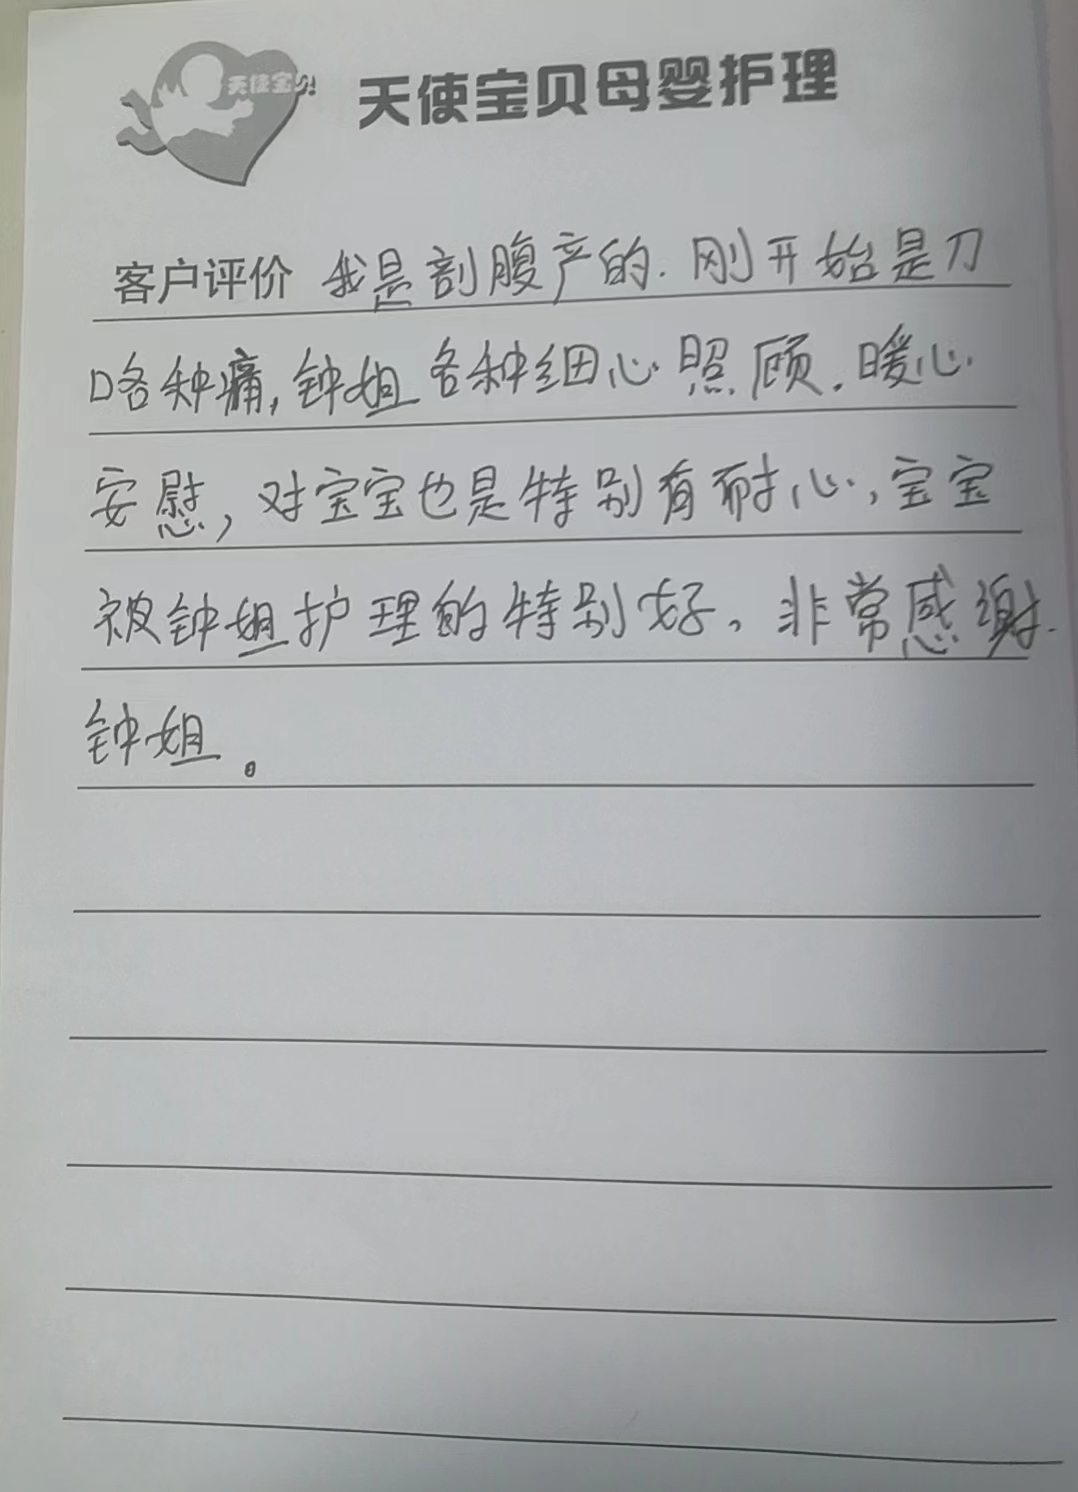 天使宝贝
天使宝贝母婴护理
客户评价 我是剖腹产的.刚开始是刀
口各种痛,钟姐各种细心照顾.暖心
安慰,对宝宝也是特别有耐心,宝宝
被钟姐护理的特别好、非常感谢.
钟姐。